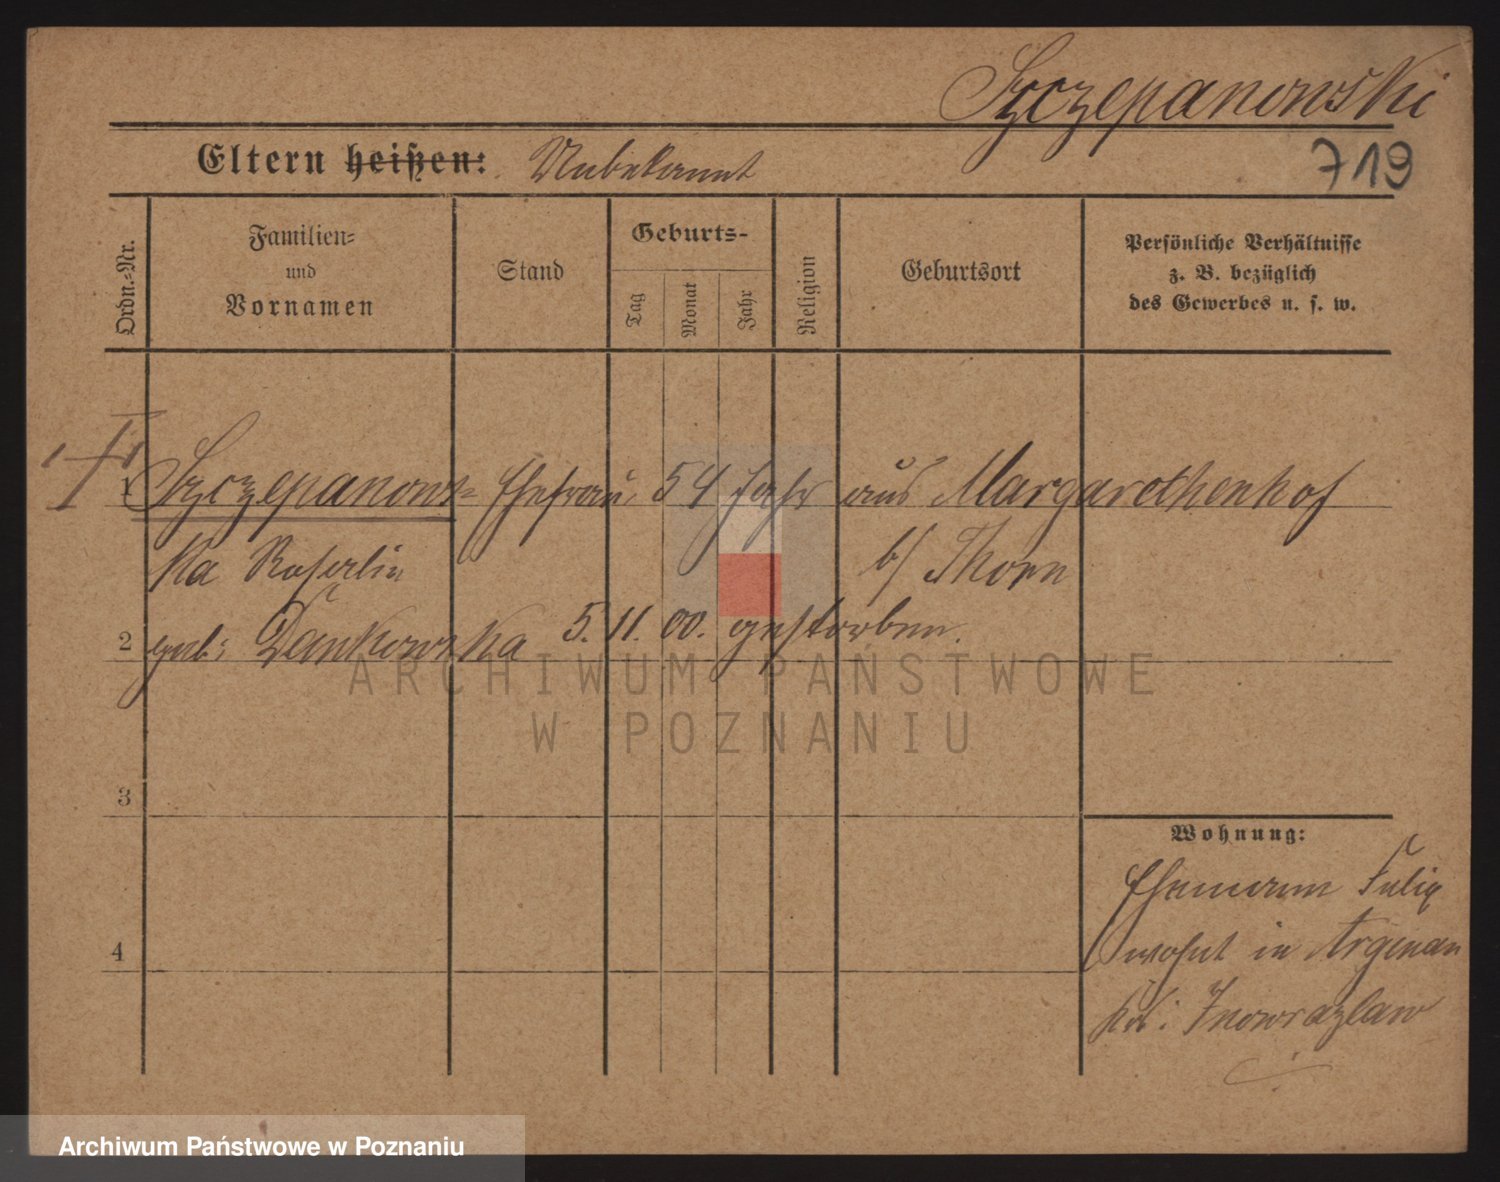 Szczepanowski
719
Eltern heißen: Unbekannt
Ordn.-Nr.
Familien-
und
Vornamen
Stand
Geburts-
Tag
Monat
Jahr
Religion
Geburtsort
Persönliche Verhältnisse
z. B. bezüglich
des Gewerbes u. s. w.
1 Szczepanows- Ehefrau, 54 Jahr aus Margarethenhof
ka Rosalie b/ Thorn
2 geb: Dankowska 5. 11. 00. gestorben.
3
4
Wohnung:
Ehemann
wohnt in Argenau
Kr: Inowrazlaw
ARCHIWUM PAŃSTWOWE
W POZNANIU
Archiwum Państwowe w Poznaniu